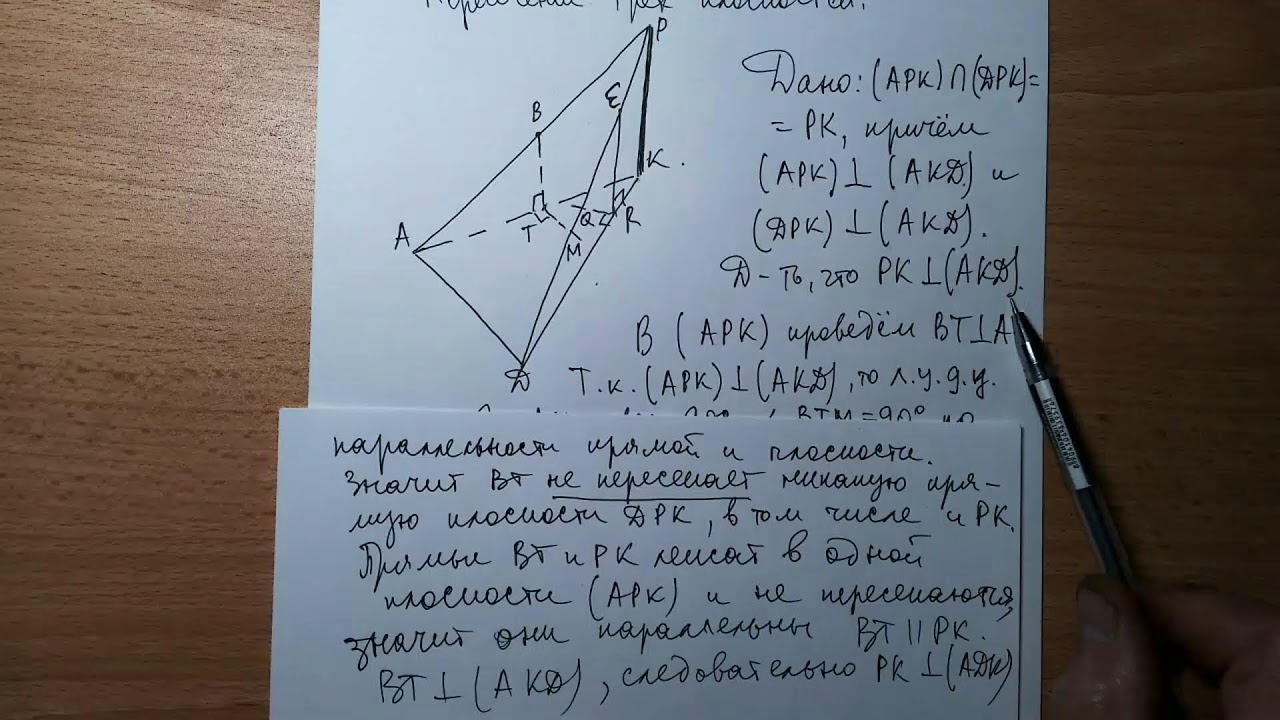 Пересечение трёх плоскостей.
P
Ɛ
B
K.
A
T
Q
R
M
Д
Дано: (APK)∩(ДPK)=
= PK, причём
(APK)⊥(AKД) и
(ДPK)⊥(AKД).
Д-ть, что PK⊥(AKД).
В (APK) проведём BT⊥A
Т.к. (APK)⊥(AKД), то л.у.д.у.
∠BTM=90° по
параллельности прямой и плоскости.
Значит BT не пересекает никакую пря-
мую плоскости ДPK, в том числе и PK.
Прямые BT и PK лежат в одной
плоскости (APK) и не пересекаются,
значит они параллельны BT||PK.
BT⊥(AKД), следовательно PK⊥(AДK)